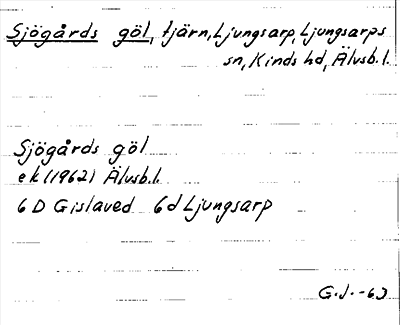 Sjögårds göl, tjärn, Ljungsarp, Ljungsarps
sn, Kinds hd, Älvsb. l.
Sjögårds göl
ek (1962) Älvsb. l.
6 D Gislaved 6d Ljungsarp
G. J. -63